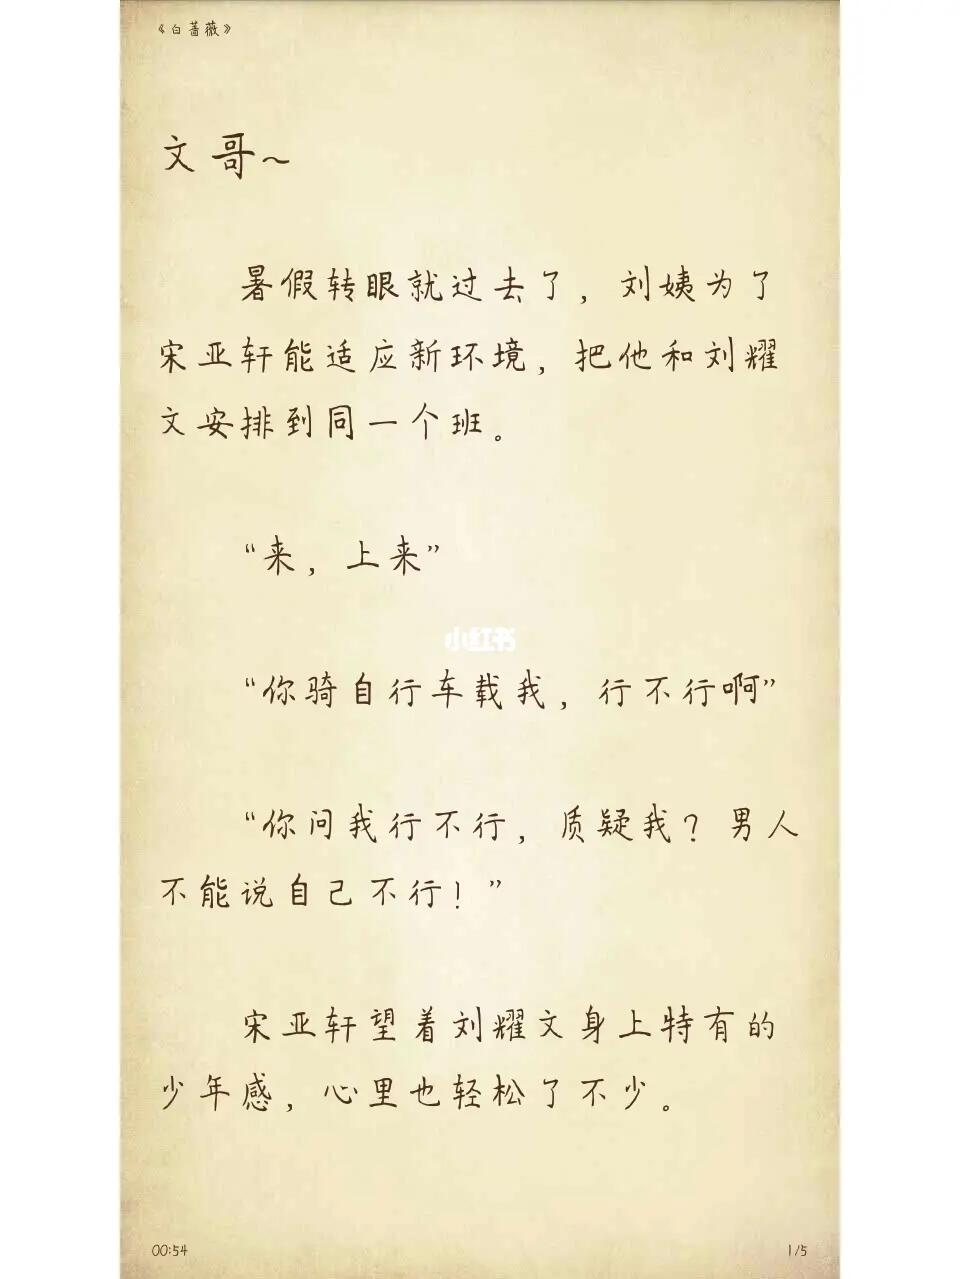 《白蔷薇》
文哥~
暑假转眼就过去了，刘姨为了
宋亚轩能适应新环境，把他和刘耀
文安排到同一个班。
“来，上来”
小红书
“你骑自行车载我，行不行啊”
“你问我行不行，质疑我？男人
不能说自己不行！”
宋亚轩望着刘耀文身上特有的
少年感，心里也轻松了不少。
00:54
1/5